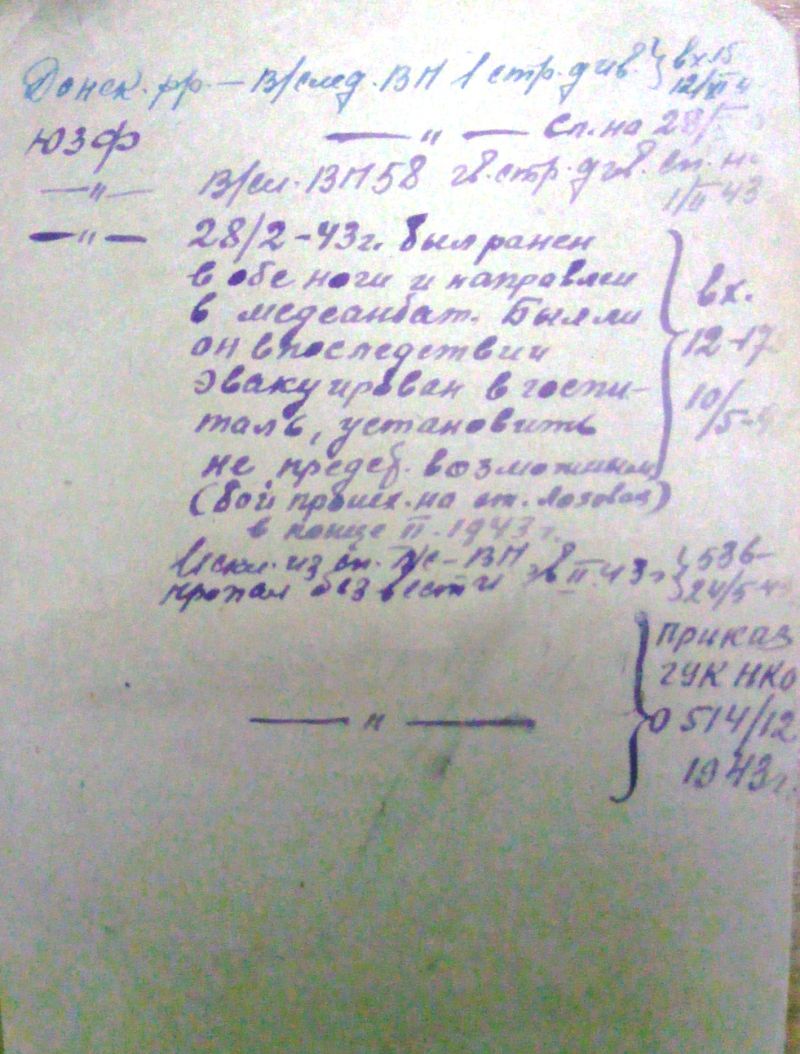 Донск. фр. — В/след. ВП 1 стр. див. } вх. 15
12/II 4
ЮЗФ — " — Сп. на 28/
— " — В/сл. ВП 58 гв. стр. див. сп. на
1/II 43
— " — 28/2-43г. был ранен
в обе ноги и направлен
в медсанбат. Был ли
он впоследствии
эвакуирован в госпи-
таль, установить
не предст. возможным
} вх.
12-17
10/5-4
(бой происх. на ст. Лозовая)
в конце II. 1943 г.
Искл. из сп. л/с - ВП
пропал без вести в II. 43г. } 536-
24/5-43
— " — } приказ
ГУК НКО
0514/12
1943г.